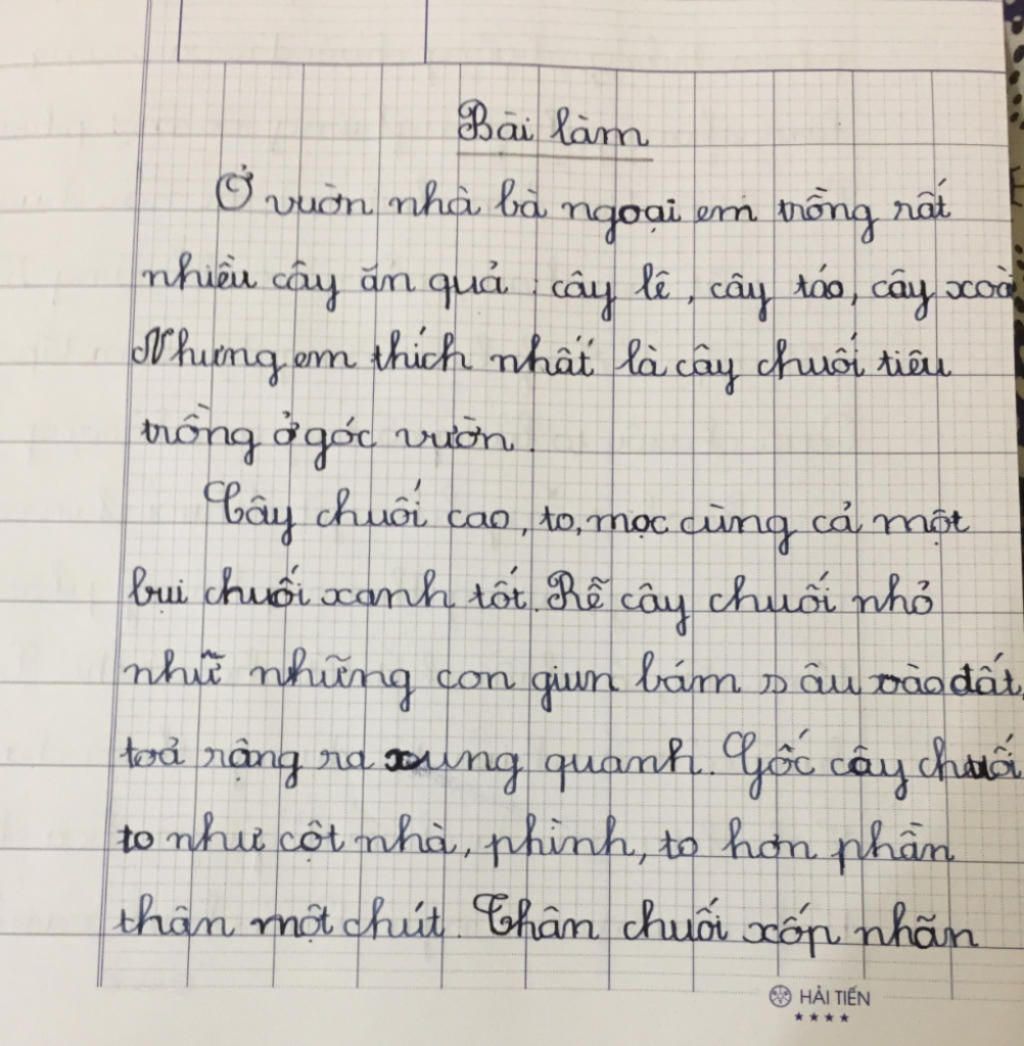 Bài làm
Ở vườn nhà bà ngoại em trồng rất
nhiều cây ăn quả : cây lê, cây táo, cây xoài
Nhưng em thích nhất là cây chuối tiêu
trồng ở góc vườn.
Cây chuối cao, to, mọc cùng cả một
bụi chuối xanh tốt. Rễ cây chuối nhỏ
như những con giun bám sâu vào đất,
toả rộng ra xung quanh. Gốc cây chuối
to như cột nhà, phình, to hơn phần
thân một chút. Thân chuối xốp nhẵn
HẢI TIẾN